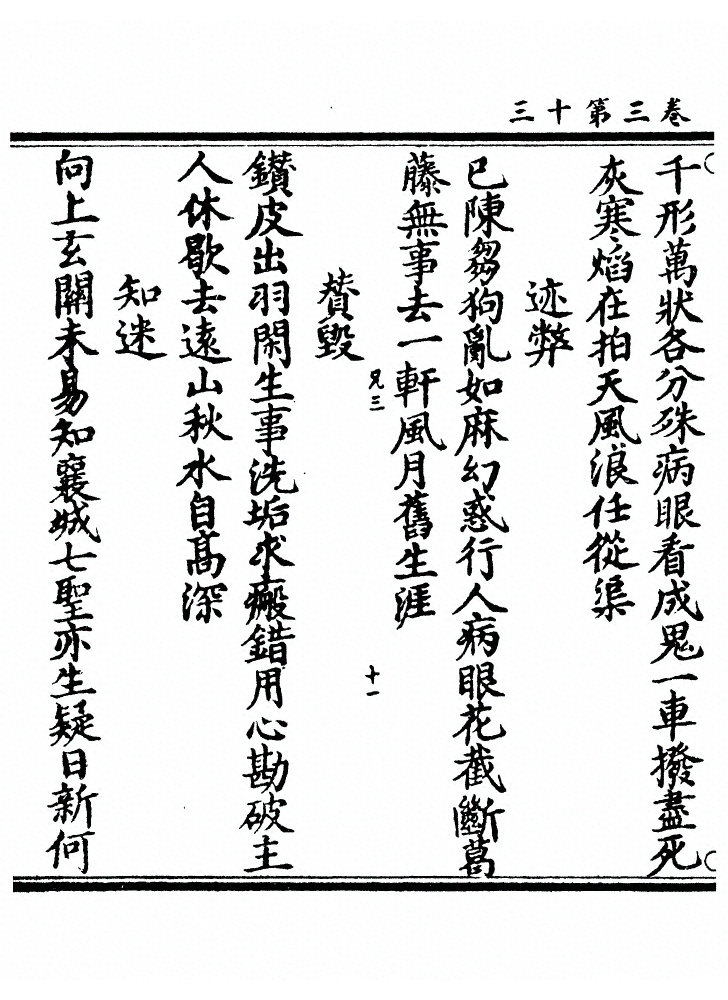 三十第三卷
千形萬狀各分殊病眼看成鬼一車撥盡死
灰寒焰在拍天風浪任從渠
迹弊
已陳芻狗亂如麻幻惑行人病眼花截斷葛
藤無事去一軒風月舊生涯
兄三
十一
賛毀
鑚皮出羽閑生事洗垢求瘢錯用心勘破主
人休歇去遠山秋水自髙深
知迷
向上玄關未易知襄城七聖亦生疑日新何